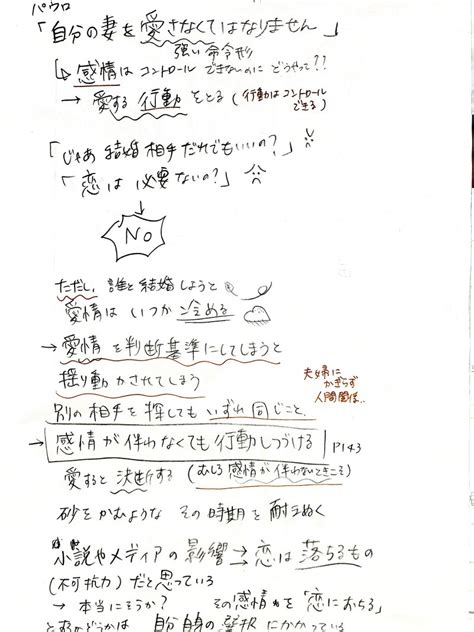 パウロ
「自分の妻を愛さなくてはなりません」
強い命令形
↳ 感情はコントロールできないのにどうやって??
→ 愛する行動をとる (行動はコントロールできる)
「じゃあ結婚相手だれでもいいの?」
「恋は必要ないの?」
↓
NO
ただし、誰と結婚しようと
愛情はいつか冷める
→ 愛情を判断基準にしてしまうと
揺り動かされてしまう
夫婦に
かぎらず
人間関係…
別の相手を探してもいずれ同じこと。
→ 感情が伴わなくても行動しつづける P143
愛すると決断する (むしろ感情が伴わないときこそ)
砂をかむような その時期を耐えぬく
小説やメディアの影響 → 恋は落ちるもの
(不可抗力)だと思っている
→ 本当にそうか? その感情を「恋におちる」
とするかどうかは 自分自身の選択にかかっている